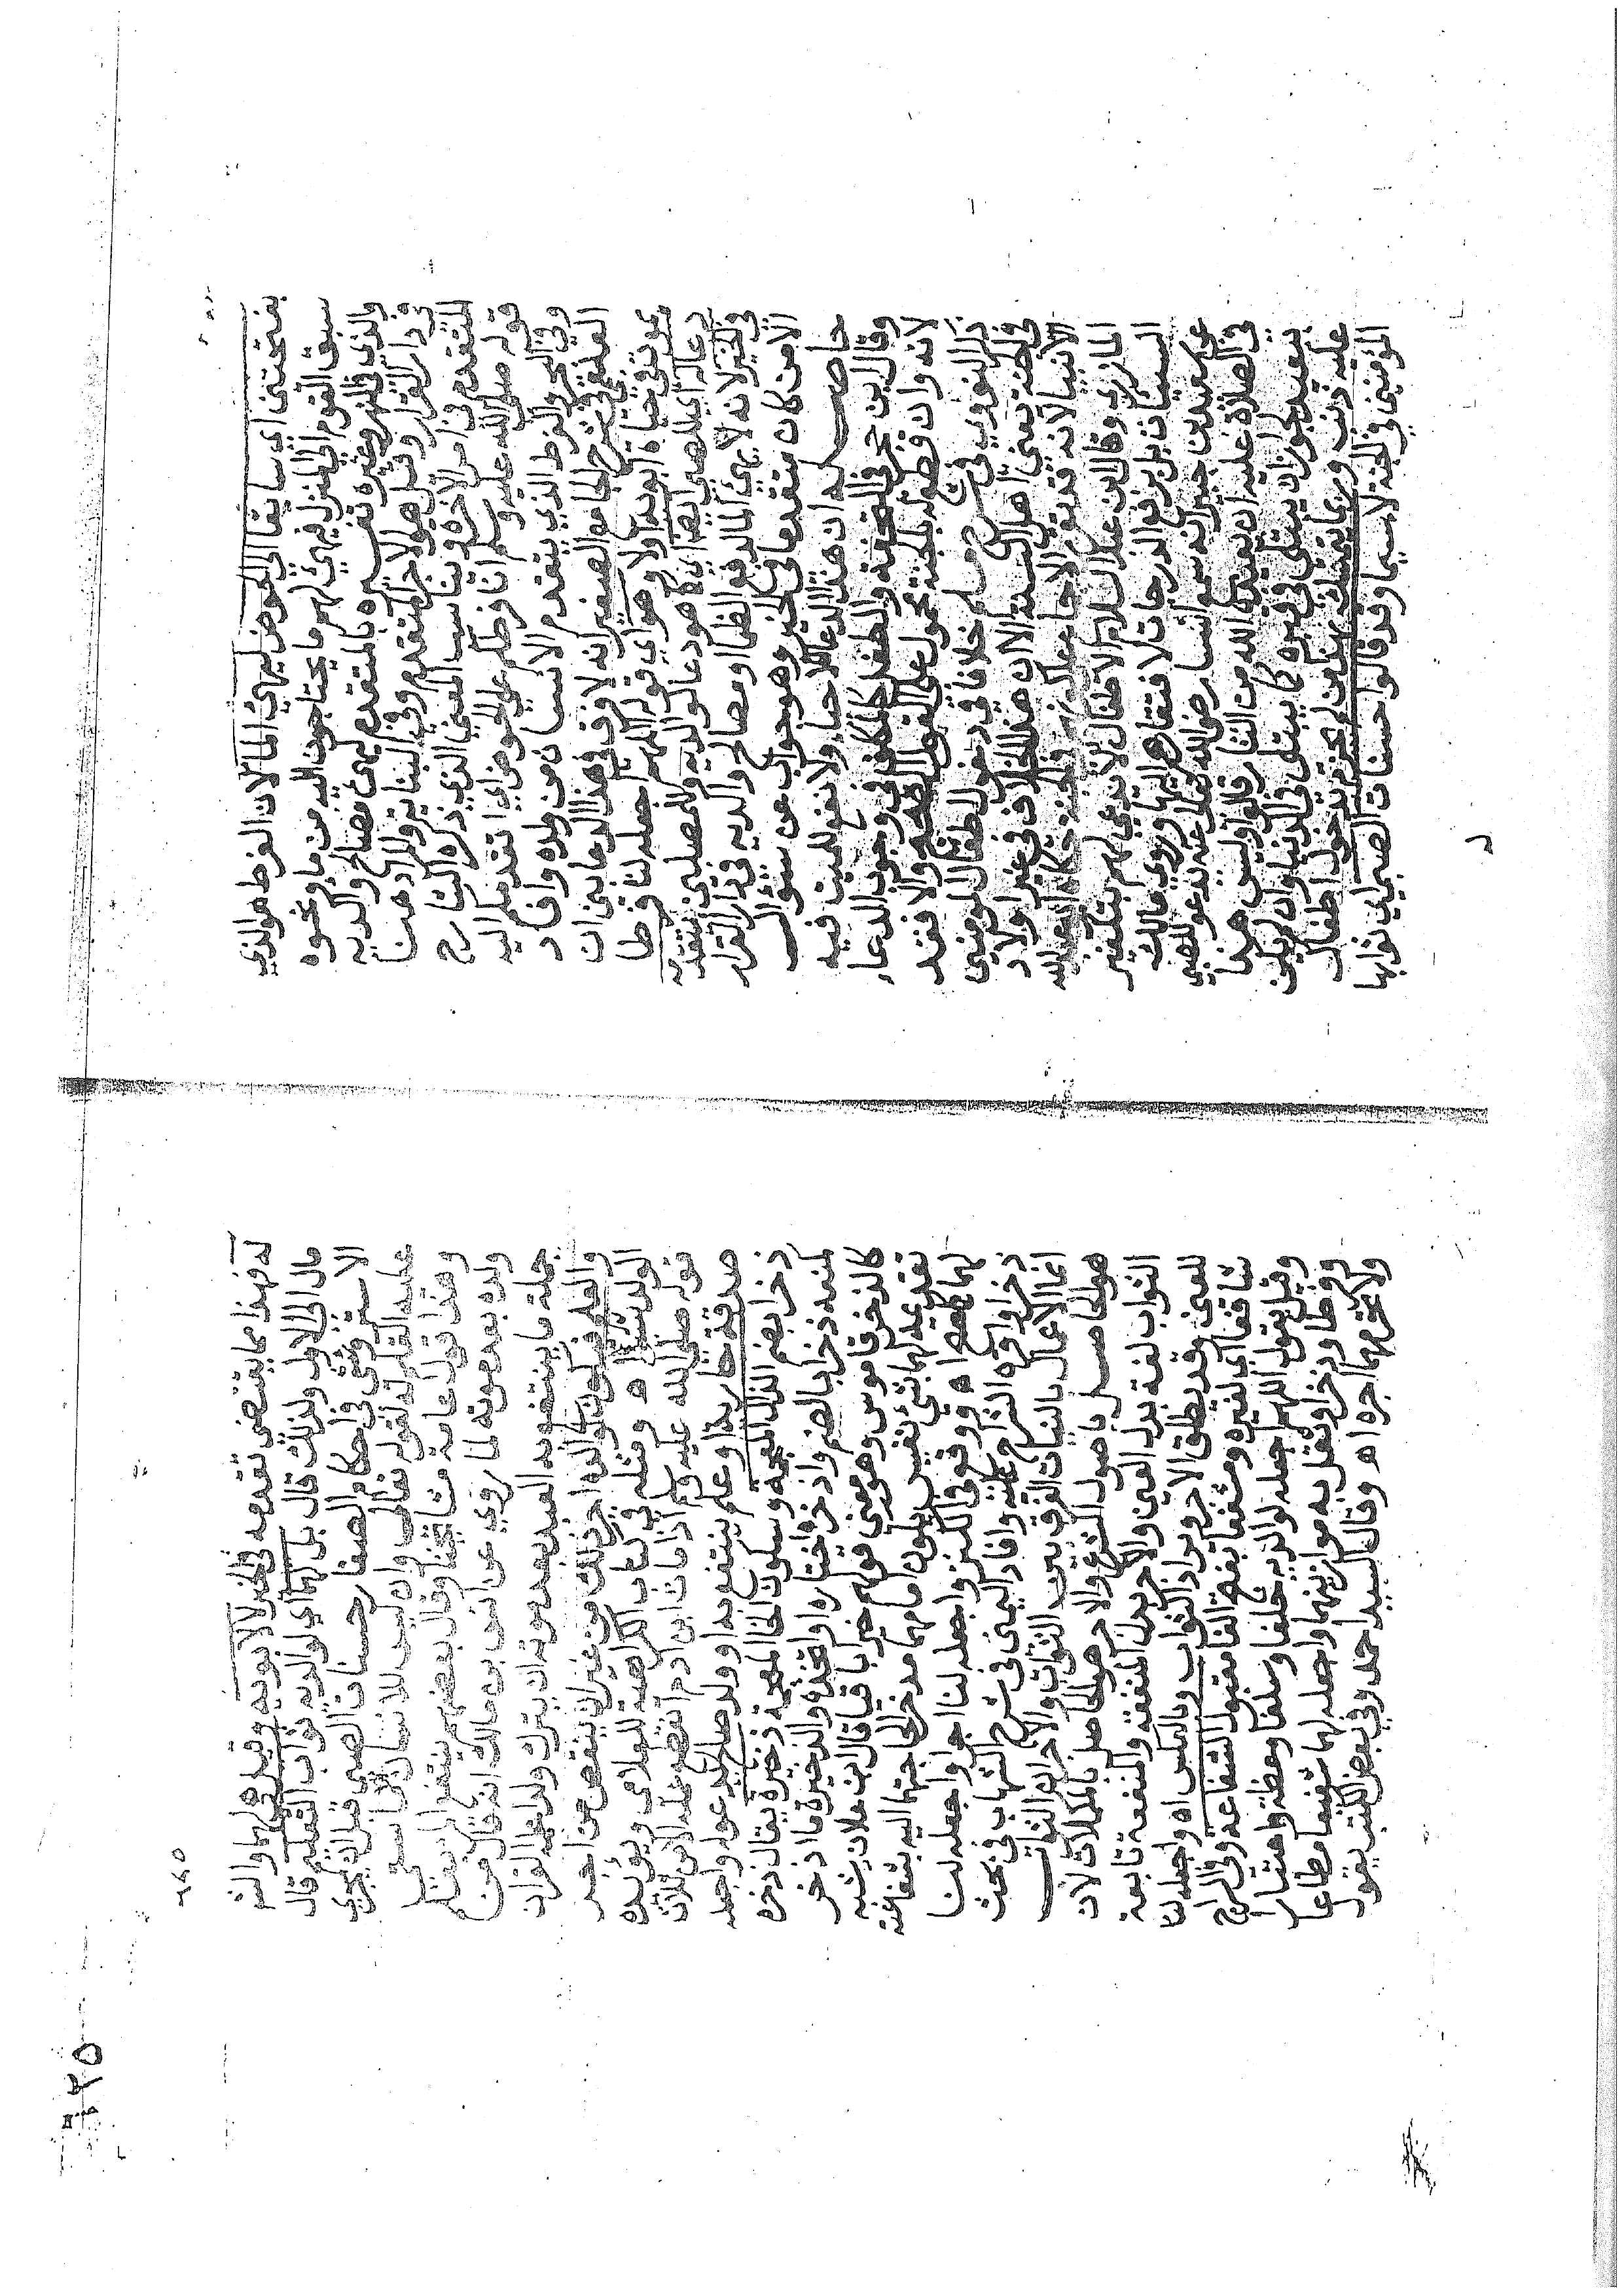 بفتحتين اي سابقا الى الحوض ليهيئ الماء لان الفرط هو الذي
سبق القوم الى المنزل فيهيئ لهم ما يحتاجون اليه من ماء ونحوه
والذي في المنح وغيره تفسيره بالمتقدم ليهيئ مصالح والديه
في دار القرار وقيل هو الاجر المتقدم وفي البناية والمراد هنا
المتقدم في امر الاخرة ويناسب المعنى الذي ذكره الشارح
قوله صلى الله عليه وسلم انا فرطكم على الحوض اي اتقدمكم اليه
وفي البحر والفرط الذي يتقدم الانسان من ولده وافاد
العلقمي في شرح الجامع الصغير انه لا فرق في هذا الدعا بين ان
يموت في حياة ابويه اولا وهو اي قوله اللهم اجعله لنا فرطا
دعا له اي للصبي ايضا اي كما هو دعا لوالديه وللمصلين بتقدمه
في الخير لانه لا يهيئ الماء لدفع الظما او مصالح والديه في دار القرار
الا من كان متقدما في الخير وهو جواب عن سؤال
حاصله ان هذا الدعا للاحياء ولا نفع للميت فيه
وقال ابن حجر في التحفة والطفل كالمكلف في وجوب الدعاء
لانه وان قطع له بالجنة محمول على القول الصحيح والا فقد
ذكر النووي في شرح مسلم خلافا في دخول اطفال المؤمنين
في الجنة يعني اهل السنة الا ان هذا الخلاف في غير اولاد
الانبيا لانه قد تقدم الاجماع على كونهم في الجنة حكاه ابو عبد الله
المازري وقال ابن عبد السلام الاطفال لا يدعى لهم بتكفير
السيئات بل برفع الدرجات لافتقارهم اليها وروي مالك
عن سعيد بن جبير انه سمع انسا رضي الله تعالى عنه يدعو للصبي
في الصلاة عليه ان يعيذه الله من النار قالوا وليس هذا
ببعيد بجواز ان يبتلى في قبره كما يبتلى في الدنيا وان لم يكن
عليه ذنب وربما يتمسك بهذا من لم يجزم بدخول اطفال
المؤمنين في الجنة لا سيما وقد قالوا حسنات الصبي اي ثوابها
له فهذا مما يقتضي تقدمه في الخير لا لابويه وقيل هي لهما والذي
مال الى الاول ولذلك قال بل لهما اي لوالديه ثواب التعليم قال
الاستروشني في احكام الصغار حسنات الصبي قبل ان يجري
عليه القلم له لقوله تعالى وان ليس للانسان الا ما سعى
وهذا قول عامة مشايخنا وقال بعضهم ينتفع المرء بعلم
ولده بعد موته لما روي عن انس بن مالك انه قال من
جملة ما ينتفع به العبد بعد موته ان يترك ولدا علمه القران
والعلم فيكون لوالده اجر ذلك من غير ان ينقص من اجر
الولد شيئا اه ومثله في كتاب الكراهية للعلامي ويؤيده
قوله صلى الله عليه وسلم اذا مات ابن ادم انقطع عمله الا من ثلاث
صدقة جارية او علم ينتفع به او ولد صالح يدعو له واجعله
ذخرا بضم الذال المعجمة وسكون الخا المعجمة ذخيرة يقال ذخره
لمنعه ذخرا بالضم واذخره اختاره او اتخذه والذخيرة ما اذخر
كالذخر قاموس وهو معنى قولهم خيرا باقيا قال ابن علان شبه
تقدمه لهما بشي نفيس يكون امامهما مدخرا لحاجتهما اليه بشفاعته
لهما اه ووقع في الكنز واجعله لنا اجرا واجعله لنا
ذخرا وفره الشراح وافاد اليمني في شرح الشهاب في بحث
انما الاعمال بالنيات الفرق بين الثواب والاجر ان الثواب
هو الحاصل باصول الشرع والاجر هو الحاصل بالمكملات لان
الثواب لغة بدل العين والاجر بدل المنفعة والمنفعة تابعة
للعين وقد يطلق الاجر ويراد الثواب وبالعكس اه واجعله لنا
شافعا اي لغيره ومشفعا بفتح الفا مقبول الشفاعة وفي السراج
وقيل يقول اللهم اجعله لوالديه سلفا وعظة واعتبارا
وفرطا وذخرا وثقل به موازينهما واجعله لهما شفيعا مطاعا
ولا تحرمهما اجره اه وقال السيد احمد وفي بعض الكتب يقول